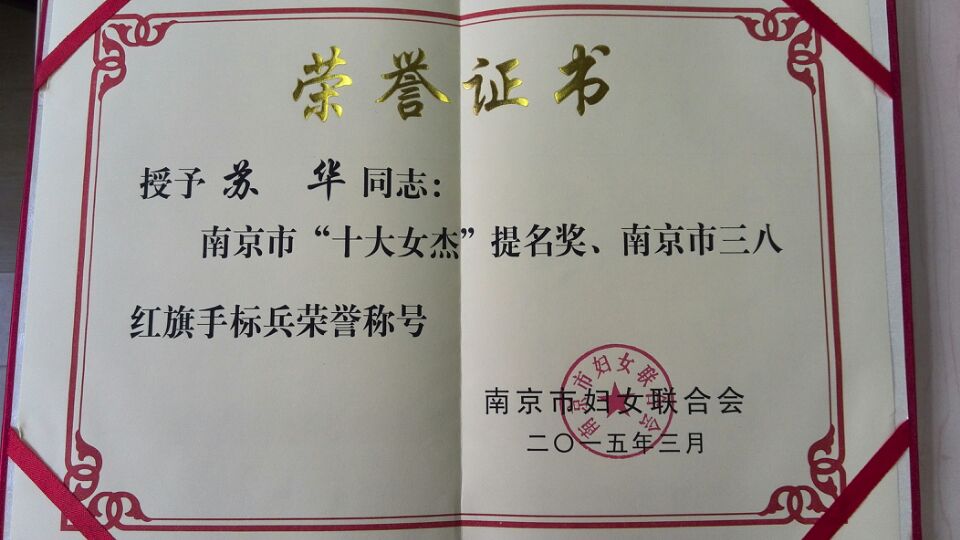 荣誉证书
授予 苏 华 同志：
南京市“十大女杰”提名奖、南京市三八
红旗手标兵荣誉称号
南京市妇女联合会
南京市妇女联合会
二〇一五年三月